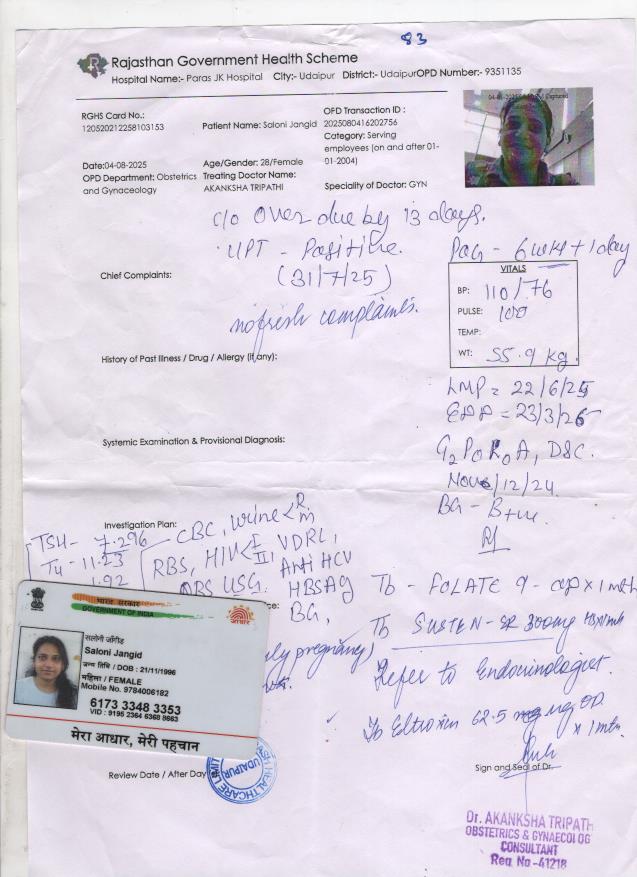 83
Rajasthan Government Health Scheme
Hospital Name:- Paras JK Hospital City:- Udaipur District:- UdaipurOPD Number:- 9351135
RGHS Card No.:
120520212258103153
Patient Name: Saloni Jangid
OPD Transaction ID :
2025080416202756
Category: Serving
employees (on and after 01-
01-2004)
Date:04-08-2025
OPD Department: Obstetrics
and Gynaceology
Age/Gender: 28/Female
Treating Doctor Name:
AKANKSHA TRIPATHI
Speciality of Doctor: GYN
c/o Over due by 13 days.
UPT - Positive.
(31/7/25)
no fresh complaints.
POG - 6 wks + 1 day
Chief Complaints:
VITALS
BP: 110/76
PULSE: 100
TEMP:
WT: 55.9 kg.
History of Past Illness / Drug / Allergy (if any):
LMP = 22/6/25
EDD = 23/3/26
Systemic Examination & Provisional Diagnosis:
G2P0L0A1 D&C.
12/24
BG - B+ve
Investigation Plan:
TSH - 7.296
T4 - 11.23
1.92
CBC, Urine < R M
RBS, HIV < I II VDRL,
Anti HCV
OBS USG. HBSAg
BG,
Tb - FOLATE 9 - x 1 mth
Tb SUSTEN-SR 300mg HS x 1mth
ly pregnancy)
Refer to Endocrinologist.
Tb Eltroxin 62.5 mcg OD x 1 mth.
भारत सरकार
GOVERNMENT OF INDIA
आधार
सलोनी जाँगीड
Saloni Jangid
जन्म तिथि / DOB : 21/11/1996
महिला / FEMALE
Mobile No. 9784006182
6173 3348 3353
VID : 9195 2364 6368 8663
मेरा आधार, मेरी पहचान
Review Date / After Day
HEALTHCARE LIMIT
UDAIPUR
Sign and Seal of Dr.
Dr. AKANKSHA TRIPATH
OBSTETRICS & GYNAECOLOG
CONSULTANT
Reg No -41218